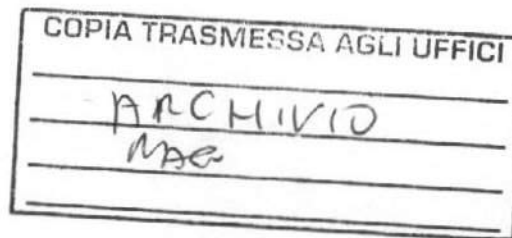 COPIA TRASMESSA AGLI UFFICI
ARCHIVIO